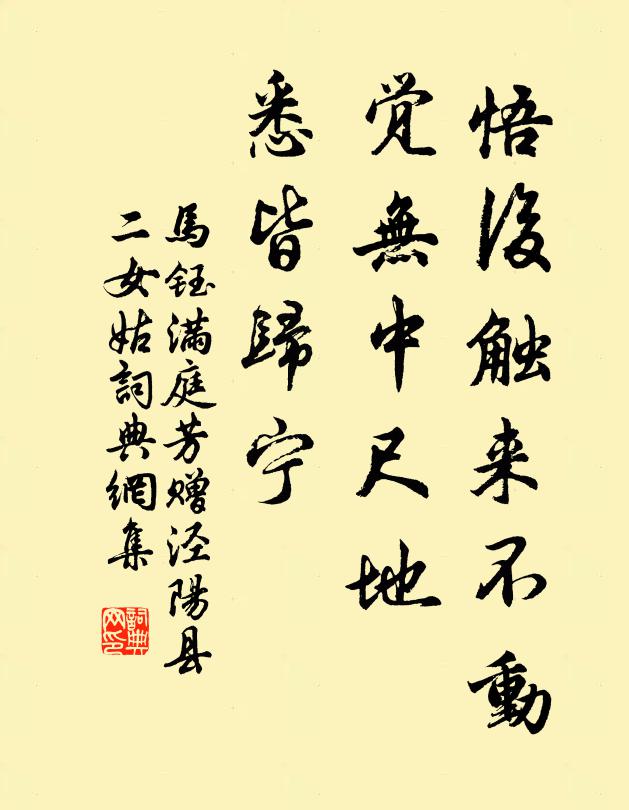 悟後触来不動
覚無中尺地
悉皆歸宁
馬鈺満庭芳赠泾陽县
二女姑詞典網集
詞典网印